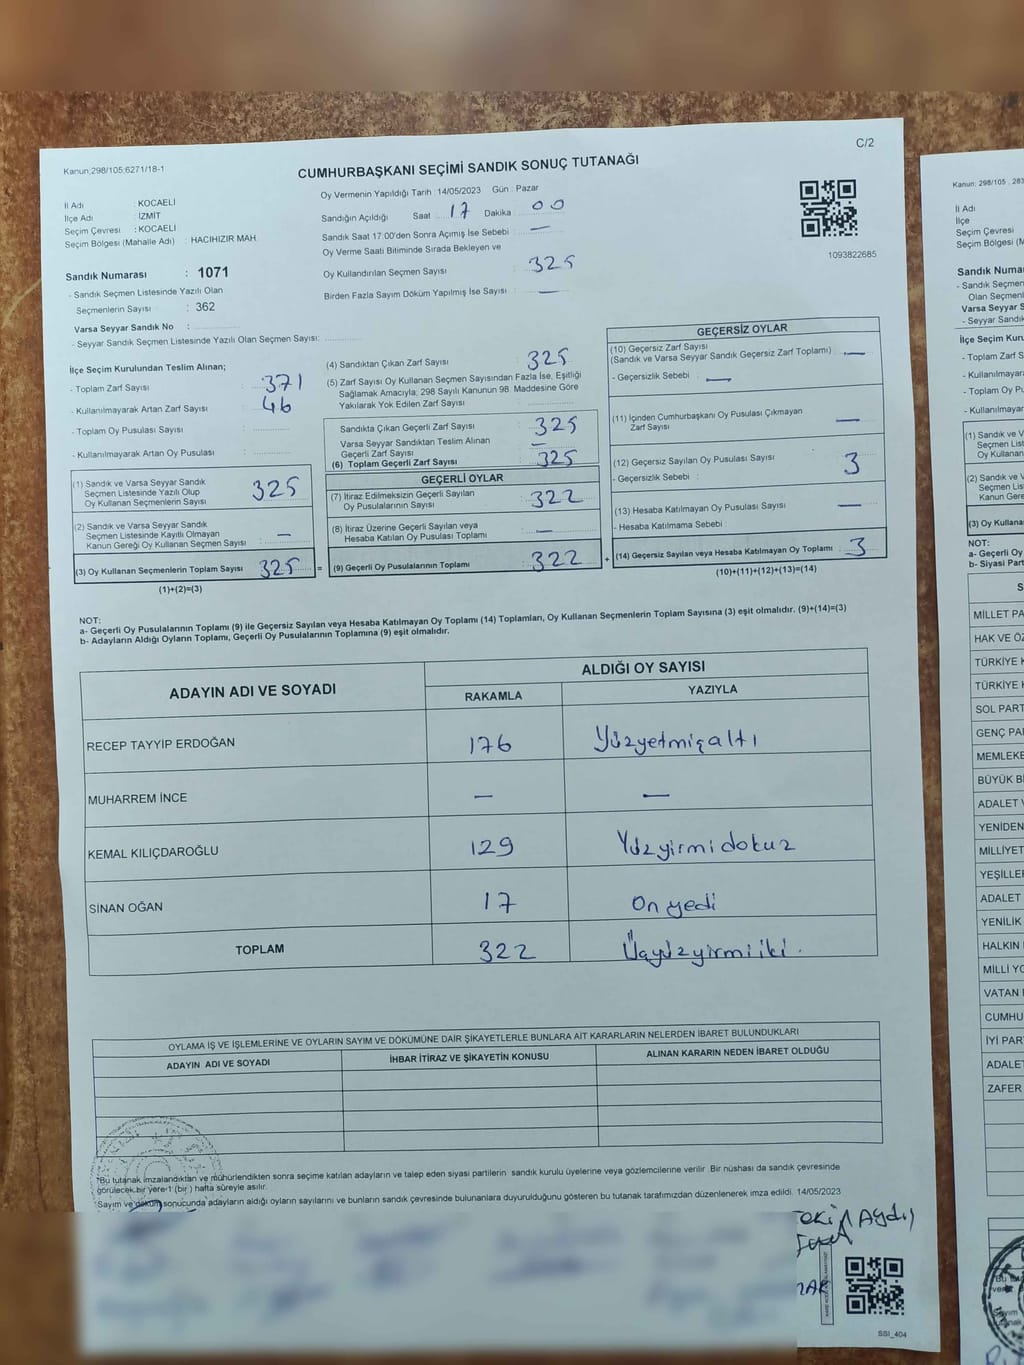 C/2
Kanun;298/105;6271/18-1
CUMHURBAŞKANI SEÇİMİ SANDIK SONUÇ TUTANAĞI
İl Adı : KOCAELİ
İlçe Adı : İZMİT
Seçim Çevresi : KOCAELİ
Seçim Bölgesi (Mahalle Adı) : HACIHIZIR MAH.
Sandık Numarası : 1071
- Sandık Seçmen Listesinde Yazılı Olan
Seçmenlerin Sayısı : 362
Varsa Seyyar Sandık No :
- Seyyar Sandık Seçmen Listesinde Yazılı Olan Seçmen Sayısı:
Oy Vermenin Yapıldığı Tarih : 14/05/2023 Gün : Pazar
Sandığın Açıldığı Saat 17 Dakika : 00
Sandık Saat 17:00'den Sonra Açımış İse Sebebi : —
Oy Verme Saati Bitiminde Sırada Bekleyen ve
Oy Kullandırılan Seçmen Sayısı : 325
Birden Fazla Sayım Döküm Yapılmış İse Sayısı : —
1093822685
İlçe Seçim Kurulundan Teslim Alınan;
- Toplam Zarf Sayısı : 371
- Kullanılmayarak Artan Zarf Sayısı : 46
- Toplam Oy Pusulası Sayısı :
- Kullanılmayarak Artan Oy Pusulası :
(1) Sandık ve Varsa Seyyar Sandık
Seçmen Listesinde Yazılı Olup
Oy Kullanan Seçmenlerin Sayısı 325
(2) Sandık ve Varsa Seyyar Sandık
Seçmen Listesinde Kayıtlı Olmayan
Kanun Gereği Oy Kullanan Seçmen Sayısı : —
(3) Oy Kullanan Seçmenlerin Toplam Sayısı 325
(1)+(2)=(3)
=
(4) Sandıktan Çıkan Zarf Sayısı : 325
(5) Zarf Sayısı Oy Kullanan Seçmen Sayısından Fazla İse, Eşitliği
Sağlamak Amacıyla; 298 Sayılı Kanunun 98. Maddesine Göre
Yakılarak Yok Edilen Zarf Sayısı :
Sandıkta Çıkan Geçerli Zarf Sayısı : 325
Varsa Seyyar Sandıktan Teslim Alınan
Geçerli Zarf Sayısı : —
(6) Toplam Geçerli Zarf Sayısı : 325
GEÇERLİ OYLAR
(7) İtiraz Edilmeksizin Geçerli Sayılan
Oy Pusulalarının Sayısı : 322
(8) İtiraz Üzerine Geçerli Sayılan veya
Hesaba Katılan Oy Pusulası Toplamı : —
(9) Geçerli Oy Pusulalarının Toplamı : 322
+
GEÇERSİZ OYLAR
(10) Geçersiz Zarf Sayısı
(Sandık ve Varsa Seyyar Sandık Geçersiz Zarf Toplamı) : —
- Geçersizlik Sebebi : —
(11) İçinden Cumhurbaşkanı Oy Pusulası Çıkmayan
Zarf Sayısı : —
(12) Geçersiz Sayılan Oy Pusulası Sayısı : 3
- Geçersizlik Sebebi :
(13) Hesaba Katılmayan Oy Pusulası Sayısı : —
- Hesaba Katılmama Sebebi :
(14) Geçersiz Sayılan veya Hesaba Katılmayan Oy Toplamı : 3
(10)+(11)+(12)+(13)=(14)
NOT:
a- Geçerli Oy Pusulalarının Toplamı (9) ile Geçersiz Sayılan veya Hesaba Katılmayan Oy Toplamı (14) Toplamları, Oy Kullanan Seçmenlerin Toplam Sayısına (3) eşit olmalıdır. (9)+(14)=(3)
b- Adayların Aldığı Oyların Toplamı, Geçerli Oy Pusulalarının Toplamına (9) eşit olmalıdır.
ADAYIN ADI VE SOYADI
ALDIĞI OY SAYISI
RAKAMLA YAZIYLA
RECEP TAYYİP ERDOĞAN 176 Yüzyetmişaltı
MUHARREM İNCE — —
KEMAL KILIÇDAROĞLU 129 Yüzyirmidokuz
SİNAN OĞAN 17 On yedi
TOPLAM 322 Üçyüzyirmiiki.
OYLAMA İŞ VE İŞLEMLERİNE VE OYLARIN SAYIM VE DÖKÜMÜNE DAİR ŞİKAYETLERLE BUNLARA AİT KARARLARIN NELERDEN İBARET BULUNDUKLARI
ADAYIN ADI VE SOYADI İHBAR İTİRAZ VE ŞİKAYETİN KONUSU ALINAN KARARIN NEDEN İBARET OLDUĞU
*Bu tutanak imzalandıktan ve mühürlendikten sonra seçime katılan adayların ve talep eden siyasi partilerin sandık kurulu üyelerine veya gözlemcilerine verilir. Bir nüshası da sandık çevresinde
görülecek bir yere 1 (bir) hafta süreyle asılır.
*Sayım ve döküm sonucunda adayların aldığı oyların sayılarını ve bunların sandık çevresinde bulunanlara duyurulduğunu gösteren bu tutanak tarafımızdan düzenlenerek imza edildi. 14/05/2023
SSI_404
Kanun: 298/105
İl Adı
İlçe
Seçim Çevresi
Seçim Bölgesi
- Sandık Seçmen
Olan Seçmen
Varsa Seyyar S
- Seyyar Sandık
İlçe Seçim Kuru
- Toplam Zarf S
- Kullanılmayar
- Toplam Oy Pu
- Kullanılmayar
(1) Sandık ve
Seçmen Lis
Oy Kullana
(2) Sandık ve
Seçmen Lis
Kanun Gere
(3) Oy Kullana
NOT:
a- Geçerli Oy
b- Siyasi Part
MİLLET PA
HAK VE ÖZ
TÜRKİYE K
TÜRKİYE
SOL PART
GENÇ PA
MEMLEKE
BÜYÜK Bİ
ADALET V
YENİDEN
MİLLİYET
YEŞİLLER
ADALET
YENİLİK
HALKIN
MİLLİ YO
VATAN
CUMHU
İYİ PAR
ADALET
ZAFER